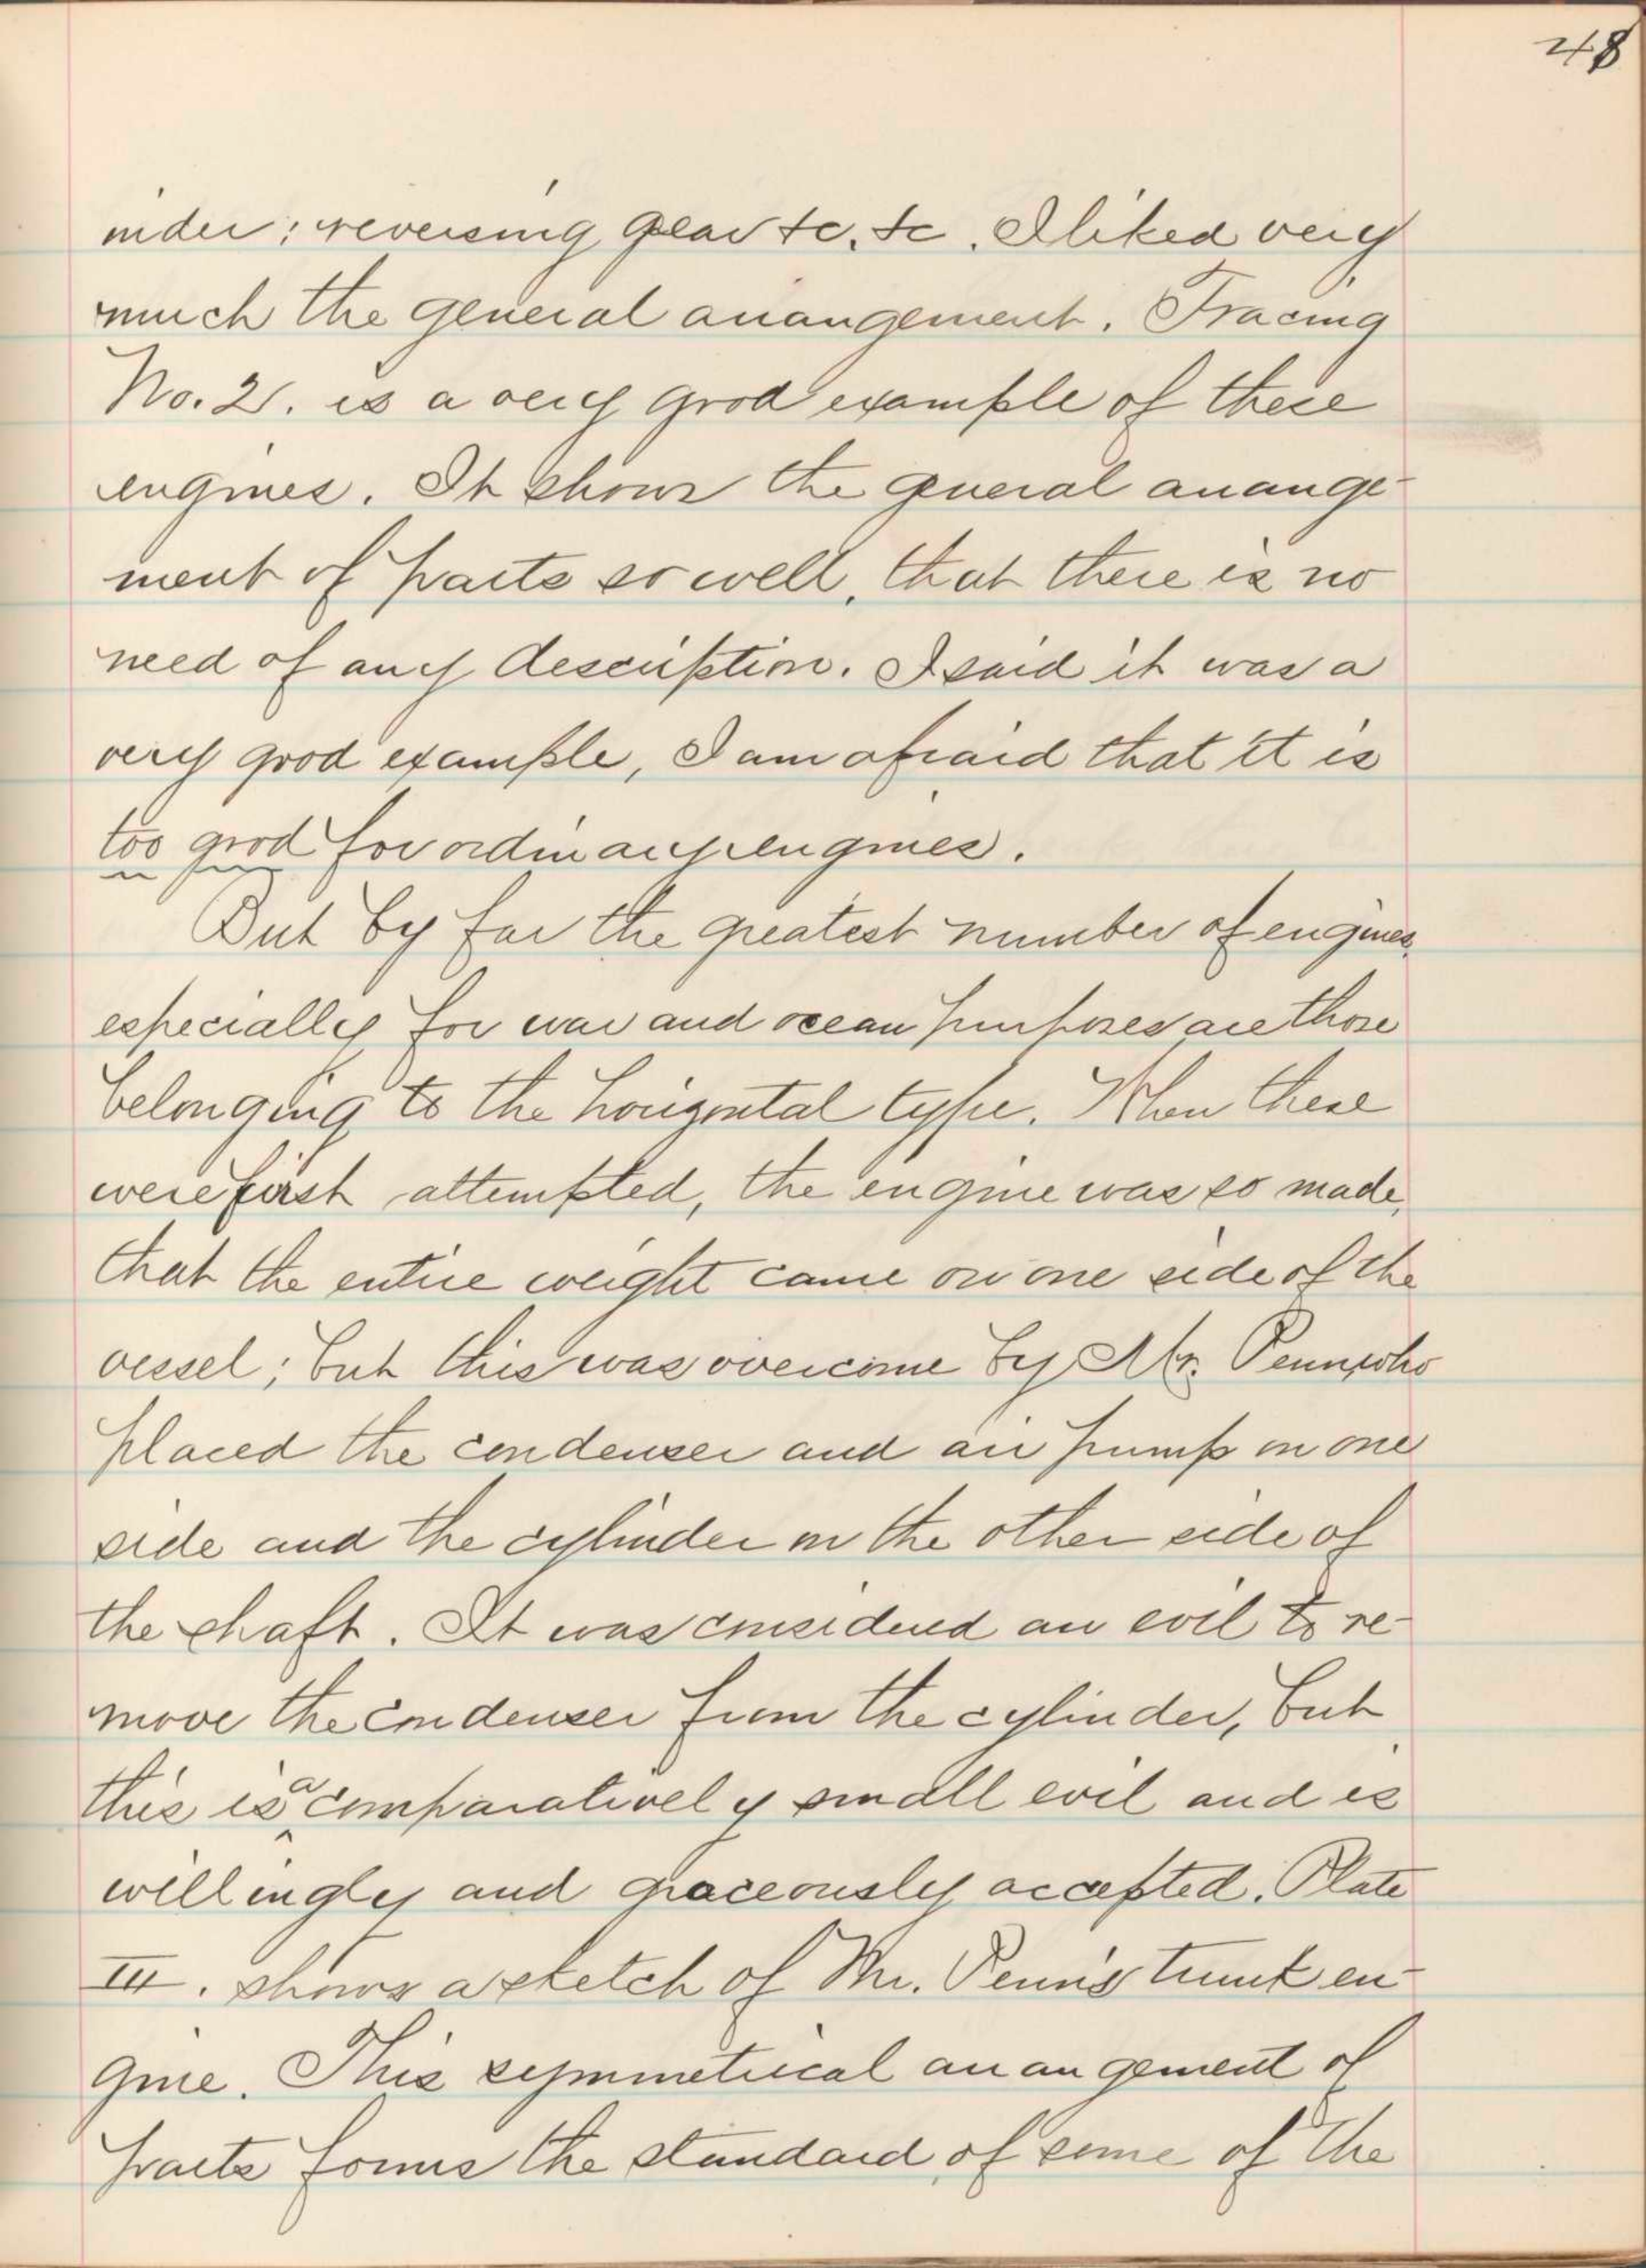 48
inder; reversing gear &c, &c. I liked very
much the general arrangement. Tracing
No. 2. is a very good example of these
engines. It shows the general arrange-
ment of parts so well, that there is no
need of any description. I said it was a
very good example, I am afraid that it is
too good for ordinary engines.
But by far the greatest number of engines,
especially for war and ocean purposes are those
belonging to the horizontal type. When these
were first attempted, the engine was so made,
that the entire weight came on one side of the
vessel; but this was overcome by Mr. Penn, who
placed the condenser and air pump on one
side and the cylinder on the other side of
the shaft. It was considered an evil to re-
move the condenser from the cylinder, but
this is a comparatively small evil and is
willingly and graceously accepted. Plate
III. shows a sketch of Mr. Penn's trunk en-
gine. This symmetrical arrangement of
parts forms the standard of some of the